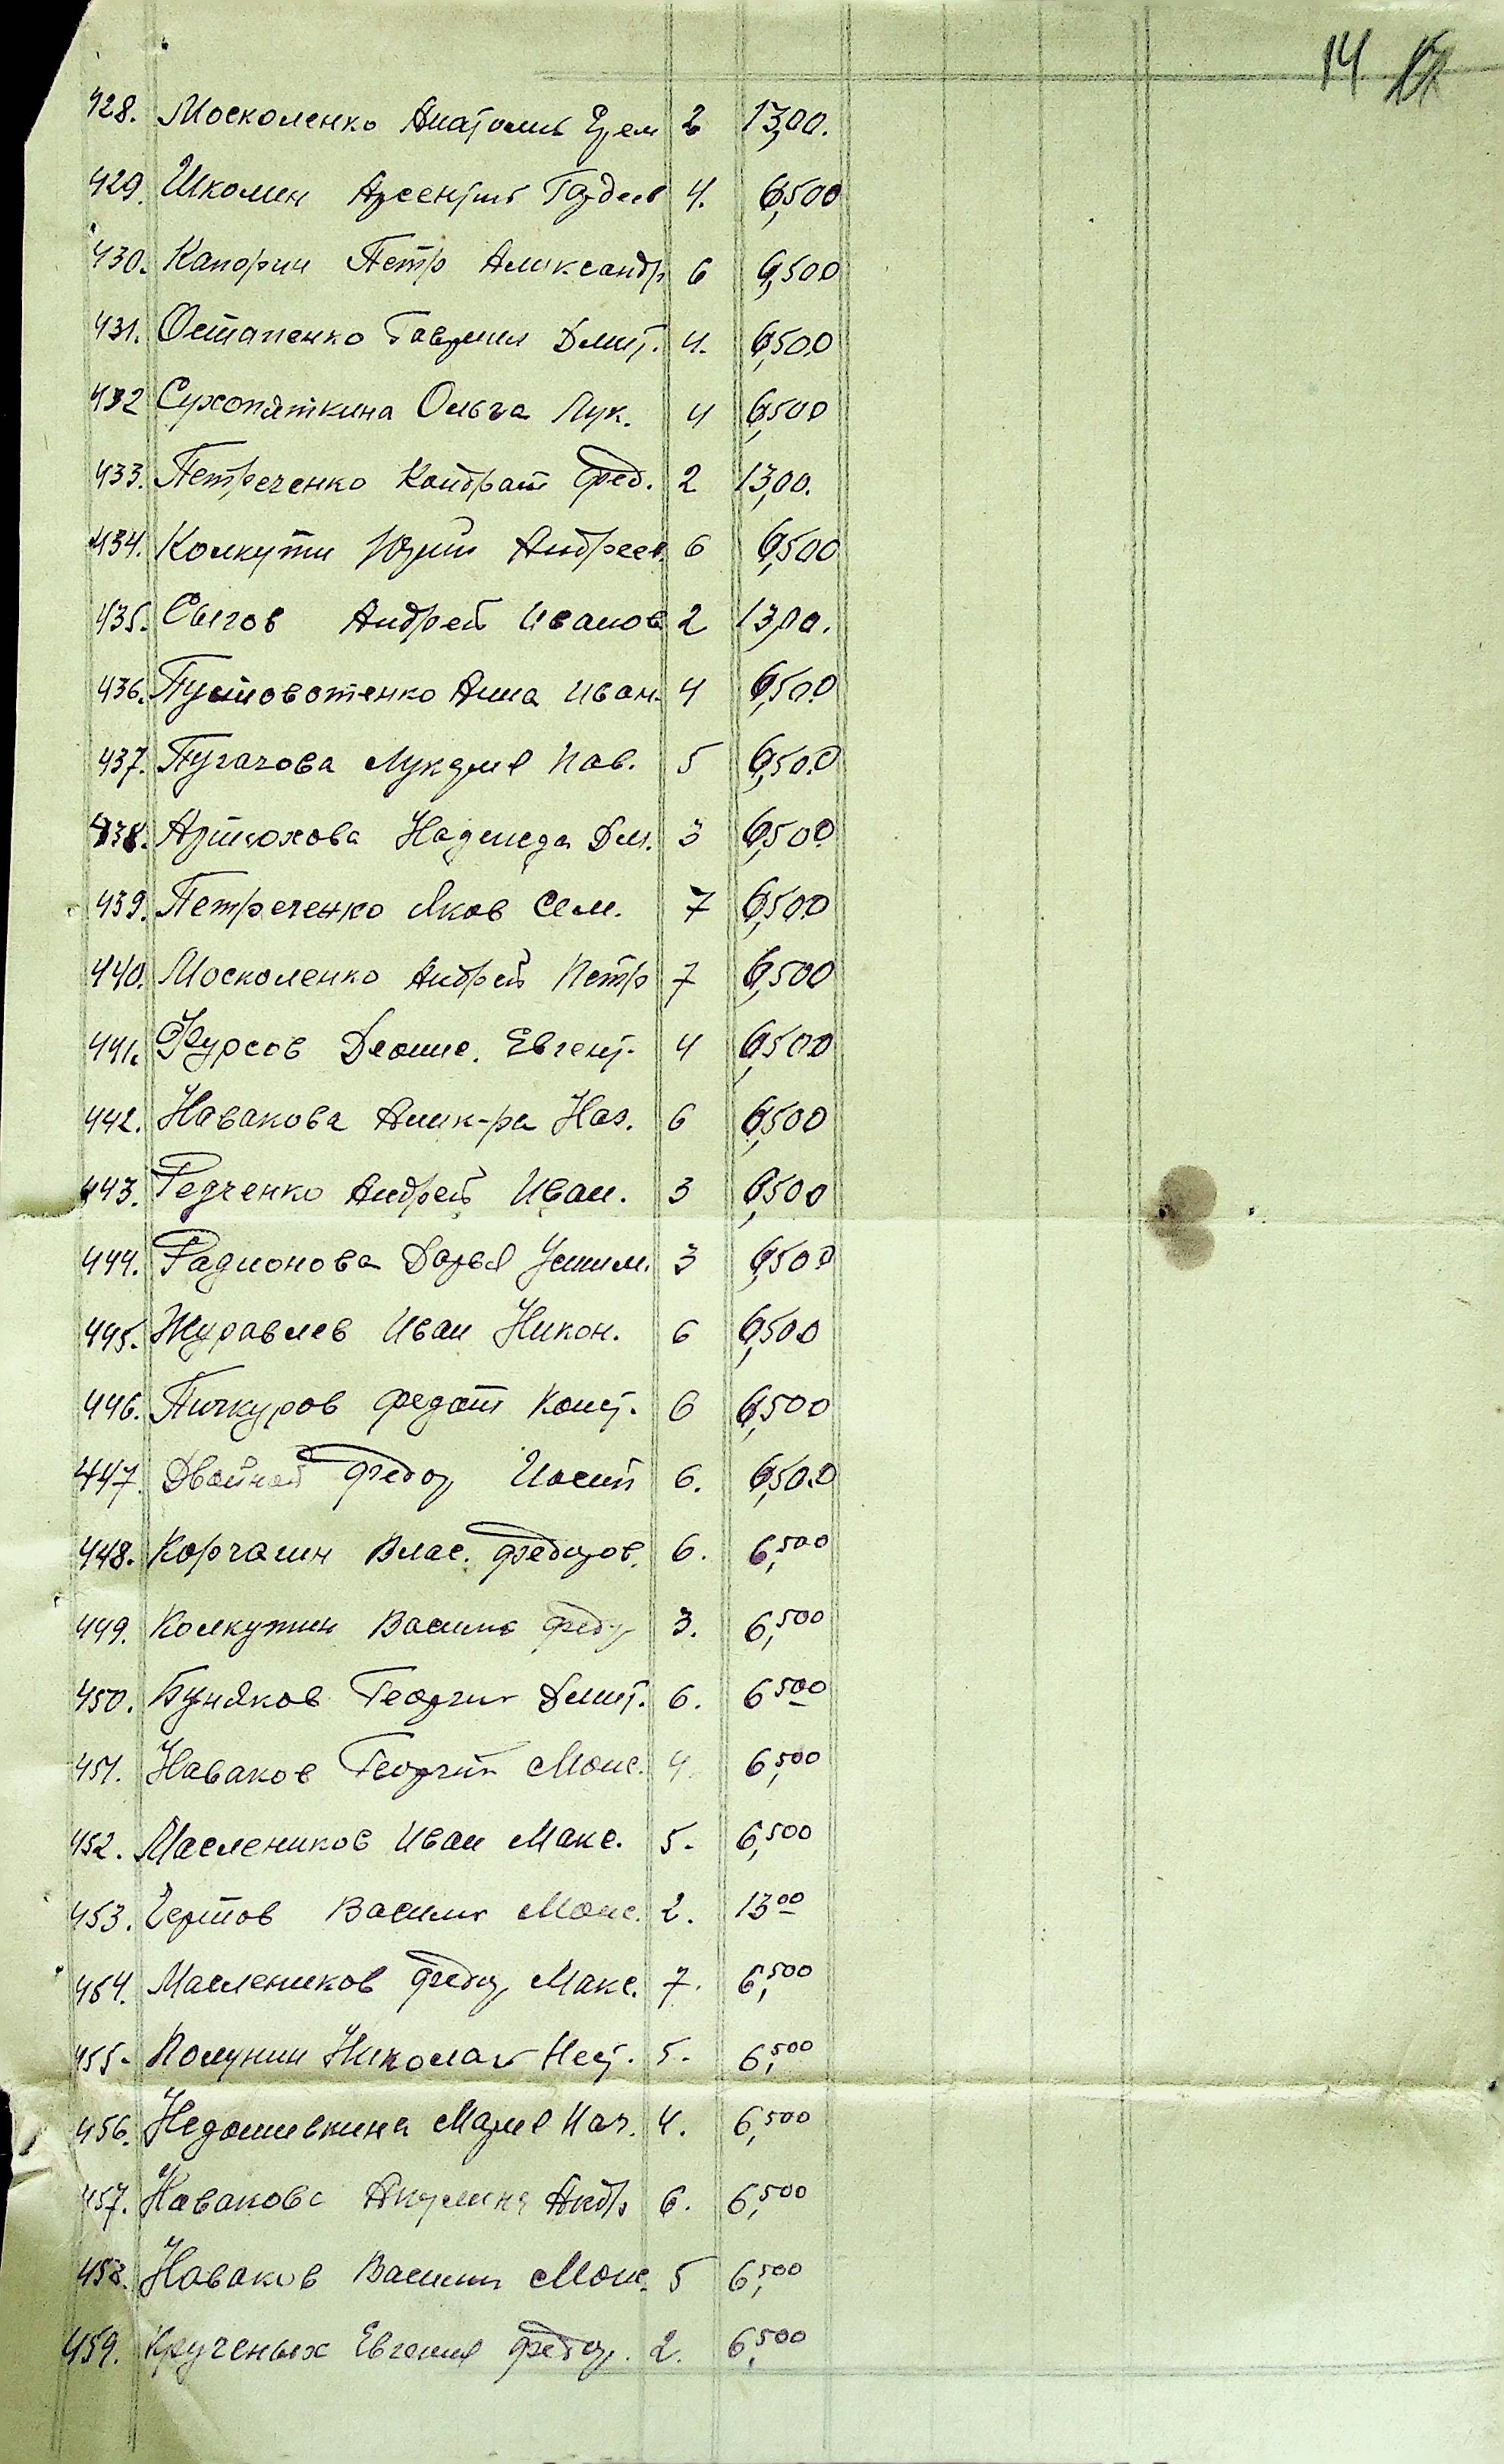 14
428. Москоленко Анатолий Ерем 2 13,00.
429. Школин Арсентий Гордеев 4. 6,500
430. Капорин Петр Александр 6 6,500
431. Остапенко Гаврил Дмит. 4. 6,500
432 Сухопяткина Ольга Лук. 4 6,500
433. Петреченко Кондрат Фед. 2 13,00.
434. Колкути Юрий Андреев. 6 6,500
435. Сычов Андрей Иванов 2 13,00.
436. Пустовотенко Анна Иван. 4 6,500
437. Пугачова Лукерия Пав. 5 6,500
438. Артюхова Надежда Дм. 3 6,500
439. Петреченко Яков Сем. 7 6,500
440. Москоленко Андрей Петр 7 6,500
441. Фурсов Деонис. Евгент. 4 6,500
442. Навакова Алек-ра Наз. 6 6,500
443. Редченко Андрей Иван. 3 6,500
444. Радионова Дарья Устим. 3 6,500
445. Журавлев Иван Никон. 6 6,500
446. Пичкуров Федот Конст. 6 6,500
447. Двойной Федор Иосип 6. 6,500
448. Корчагин Влас. Федоров. 6. 6,500
449. Колкутин Василий Федор 3. 6,500
450. Буняков Георгий Дмит. 6. 6500
451. Наваков Георгий Моис. 4. 6,500
452. Маслеников Иван Макс. 5. 6,500
453. Чертов Василий Моис. 2. 1300
454. Маслеников Федор Макс. 7. 6,500
455. Полунин Николай Нест. 5. 6,500
456. Недошивкина Мария Наз. 4. 6,500
457. Навакова Акулина Андр. 6. 6,500
458. Наваков Василий Моис. 5 6,500
459. Крученых Евгения Федор. 2. 6,500